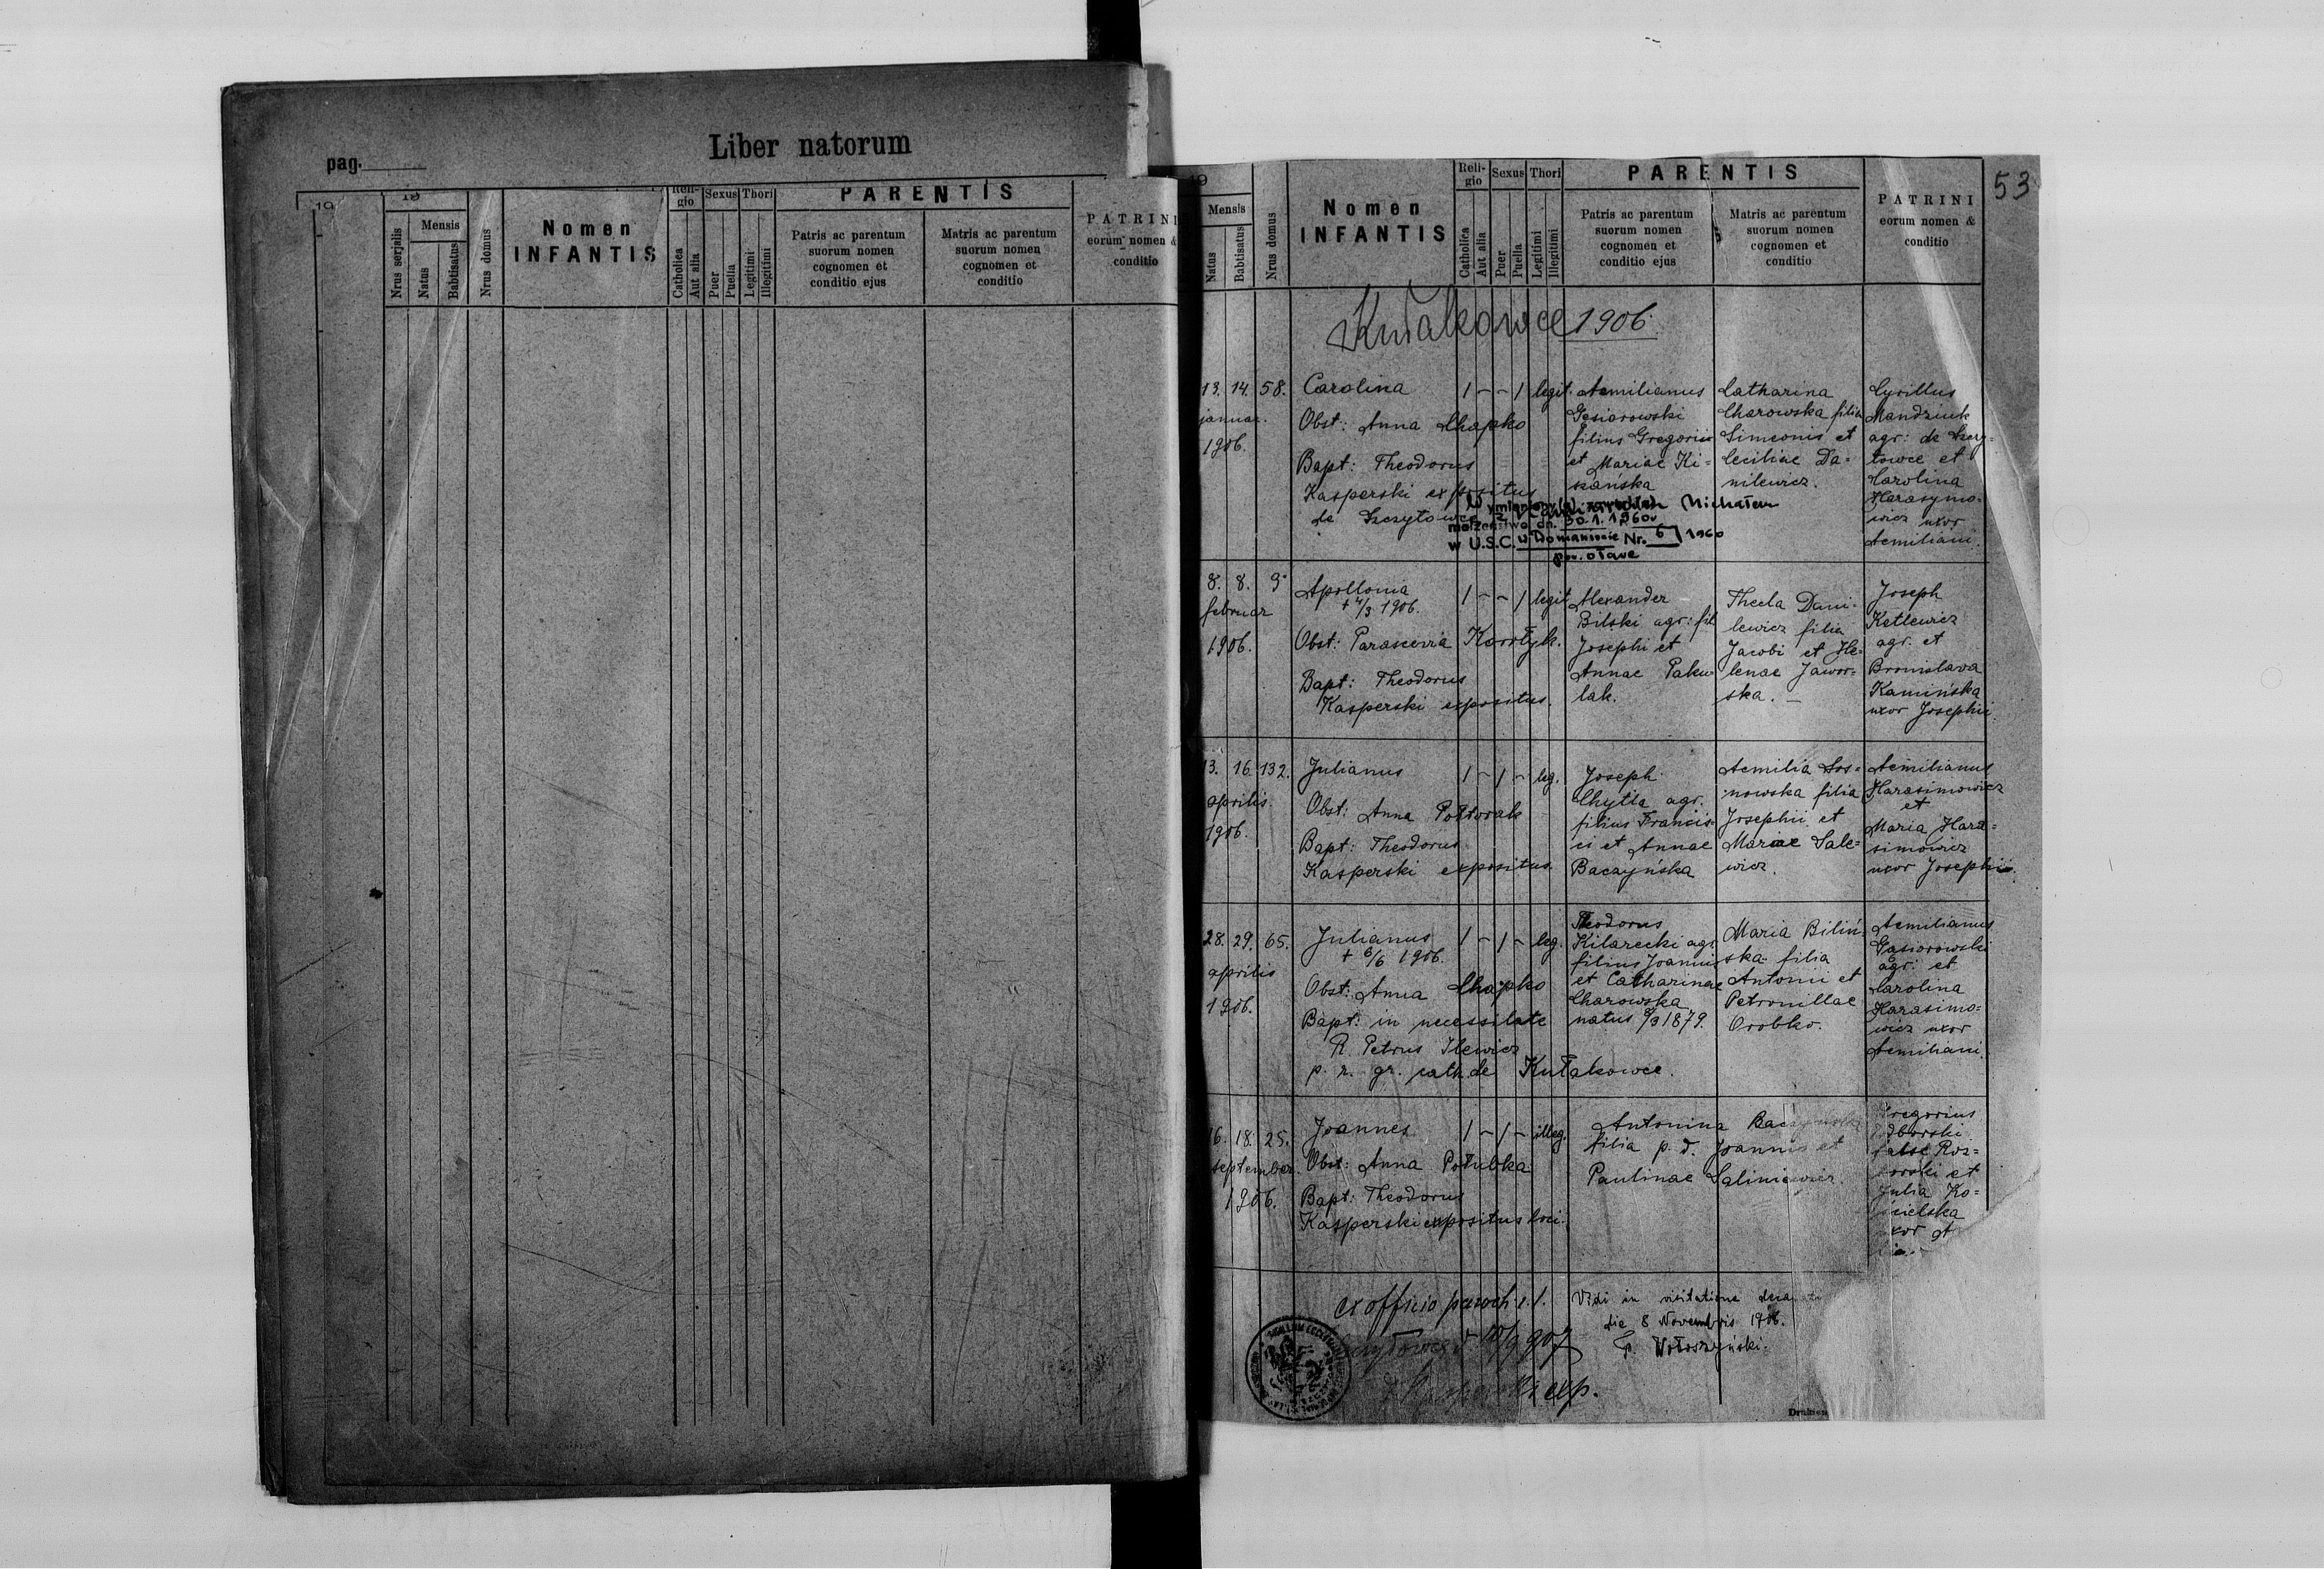 Liber natorum
pag.
19
19
Nrus serjalis
Mensis
Natus
Babtisatus
Nrus domus
Nomen
INFANTIS
Reli-
gio
Catholica
Aut alia
Sexus
Puer
Puella
Thori
Legitimi
Illegitimi
PARENTIS
Patris ac parentum
suorum nomen
cognomen et
conditio ejus
Matris ac parentum
suorum nomen
cognomen et
conditio
PATRINI
eorum nomen &
conditio
53
19
Mensis
Natus
Babtisatus
Nrus domus
Nomen
INFANTIS
Reli-
gio
Catholica
Aut alia
Sexus
Puer
Puella
Thori
Legitimi
Illegitimi
PARENTIS
Patris ac parentum
suorum nomen
cognomen et
conditio ejus
Matris ac parentum
suorum nomen
cognomen et
conditio
PATRINI
eorum nomen &
conditio
Kułakowce 1906.
13. 14. 58.
januar.
1906.
Carolina
Obst: Anna Chapko
Bapt: Theodorus
Kasperski expositus
de Szczytowce
1 - - 1 legit.
Aemilianus
Gąsiorowski
filius Gregorii
et Mariae Ki-
kańska
Catharina
Charowska filia
Simeonis et
Ceciliae Da-
nilewicz.
Cyrillus
Mandziuk
agr: de Szczy-
towce et
Carolina
Harasymo-
wicz uxor
Aemiliani.
Wymieniony(a) Michałem
małżeństwo dn. 30.1.1960
w U.S.C. w Domaniowie Nr. 6/1960
pow. oława
8. 8. 9.
februar
1906.
Apollonia
+ 4/3 1906.
Obst: Parascevia Korołyk.
Bapt: Theodorus
Kasperski expositus.
1 - - 1 legit
Alexander
Bilski agr: fil
Josephi et
Annae Paku-
lak.
Thecla Dani-
lewicz filia
Jacobi et He-
lenae Jawor-
ska. -
Joseph
Ketlewicz
agr. et
Bronislava
Kamińska
uxor Josephi.
13. 16. 132.
aprilis.
1906.
Julianus
Obst: Anna Połtorak
Bapt: Theodorus
Kasperski expositus.
1 - 1 - leg.
Joseph
Chytla agr.
filius Francis-
ci et Annae
Baczyńska
Aemilia Sos-
nowska filia
Josephii et
Mariae Sale-
wicz.
Aemilianus
Harasimowicz
et
Maria Hara-
simowicz
uxor Josephi.
28. 29. 65.
aprilis
1906.
Julianus
+ 6/6 1906.
Obst: Anna Chapko
Bapt: in necessitate
R. Petrus Ilewicz
p. r. gr. cath. de Kułakowce.
1 - 1 - leg.
Theodorus
Kilarecki agr.
filius Joannis
et Catharinae
Charowska
natus 8/3 1879.
Maria Biliń-
ska filia
Antonii et
Petronillae
Orobko.
Aemilianus
Gąsiorowski
agr: et
Carolina
Harasimo-
wicz uxor
Aemiliani.
16. 18. 25.
september.
1906.
Joannes
Obst: Anna Połubka
Bapt: Theodorus
Kasperski expositus loci.
1 - 1 - illeg.
Antonina
filia p. d. Joannis et
Paulinae Saliniewicz.
Gregorius
false Roz-
et
Julia Ko-
uxor
ex officio paroch. r. l.
d 10/9 907
exp.
Vidi in visitatione
die 8 Novembris 1906.
P. Wołoszyński.